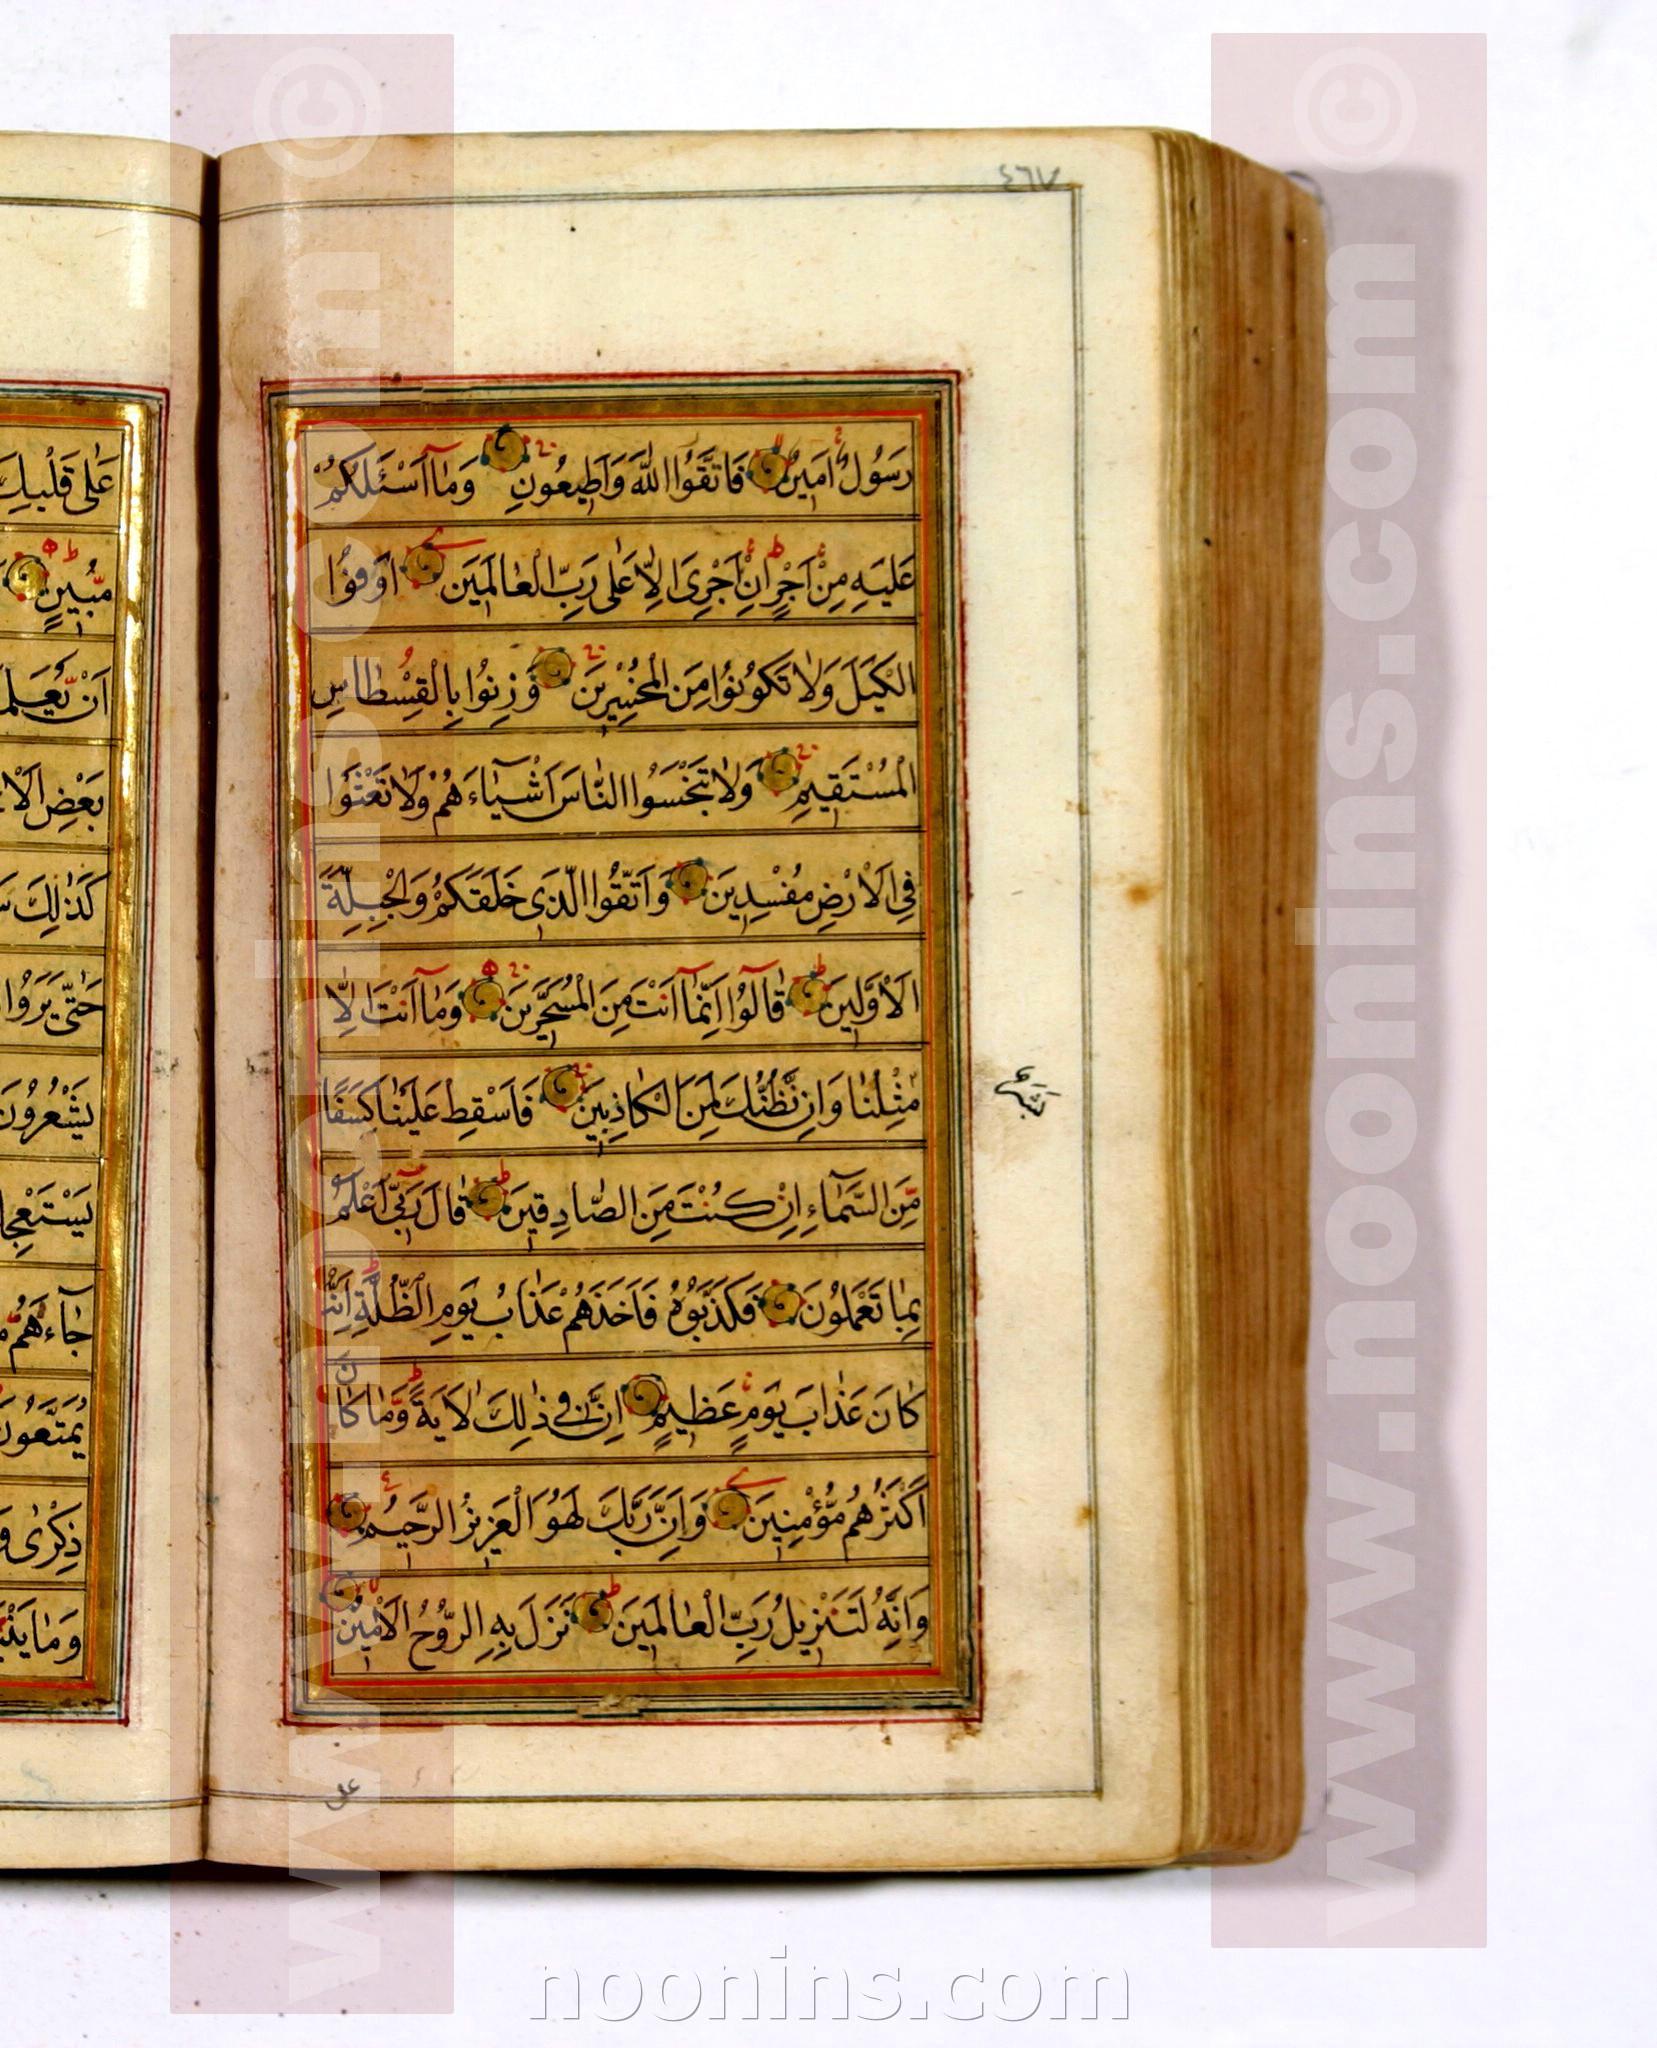 ٤٦٧
رَسُولٌ أَمِينٌ فَاتَّقُوا اللّٰهَ وَاَطِيعُونِ وَمٰٓا اَسْئَلُكُمْ
عَلَيْهِ مِنْ اَجْرٍ اِنْ اَجْرِىَ اِلّٰا عَلٰى رَبِّ الْعٰالَمِينَ اَوْفُوا
الْكَيْلَ وَلٰا تَكُونُوا مِنَ الْمُخْسِرِينَ وَزِنُوا بِالْقِسْطٰاسِ
الْمُسْتَقِيمِ وَلٰا تَبْخَسُوا النّٰاسَ اَشْيٰٓاءَهُمْ وَلٰا تَعْثَوْا
فِى الْاَرْضِ مُفْسِدِينَ وَاتَّقُوا الَّذِى خَلَقَكُمْ وَالْجِبِلَّةَ
الْاَوَّلِينَ قٰالُوٓا اِنَّمٰٓا اَنْتَ مِنَ الْمُسَحَّرِينَ وَمٰٓا اَنْتَ اِلّٰا
بَشَرٌ
مِثْلُنٰا وَاِنْ نَظُنُّكَ لَمِنَ الْكٰاذِبِينَ فَاَسْقِطْ عَلَيْنٰا كِسَفًا
مِنَ السَّمٰٓاءِ اِنْ كُنْتَ مِنَ الصّٰادِقِينَ قٰالَ رَبِّىٓ اَعْلَمُ
بِمٰا تَعْمَلُونَ فَكَذَّبُوهُ فَاَخَذَهُمْ عَذٰابُ يَوْمِ الظُّلَّةِ اِنَّهُ
كٰانَ عَذٰابَ يَوْمٍ عَظِيمٍ اِنَّ فِى ذٰلِكَ لَاٰيَةً وَمٰا كٰانَ
اَكْثَرُهُمْ مُؤْمِنِينَ وَاِنَّ رَبَّكَ لَهُوَ الْعَزِيزُ الرَّحِيمُ
وَاِنَّهُ لَتَنْزِيلُ رَبِّ الْعٰالَمِينَ نَزَلَ بِهِ الرُّوحُ الْاَمِينُ
على
عَلٰى قَلْبِكَ
مُبِينٍ
اَنْ يَعْلَمَ
بَعْضِ الْاَ
كَذٰلِكَ سَ
حَتّٰى يَرَوُا
يَشْعُرُونَ
يَسْتَعْجِلُ
جٰٓاءَهُمْ
يُمَتَّعُونَ
ذِكْرٰى وَ
وَمٰا يَنْبَ
www.noonins.com ©
www.noonins.com ©
noonins.com